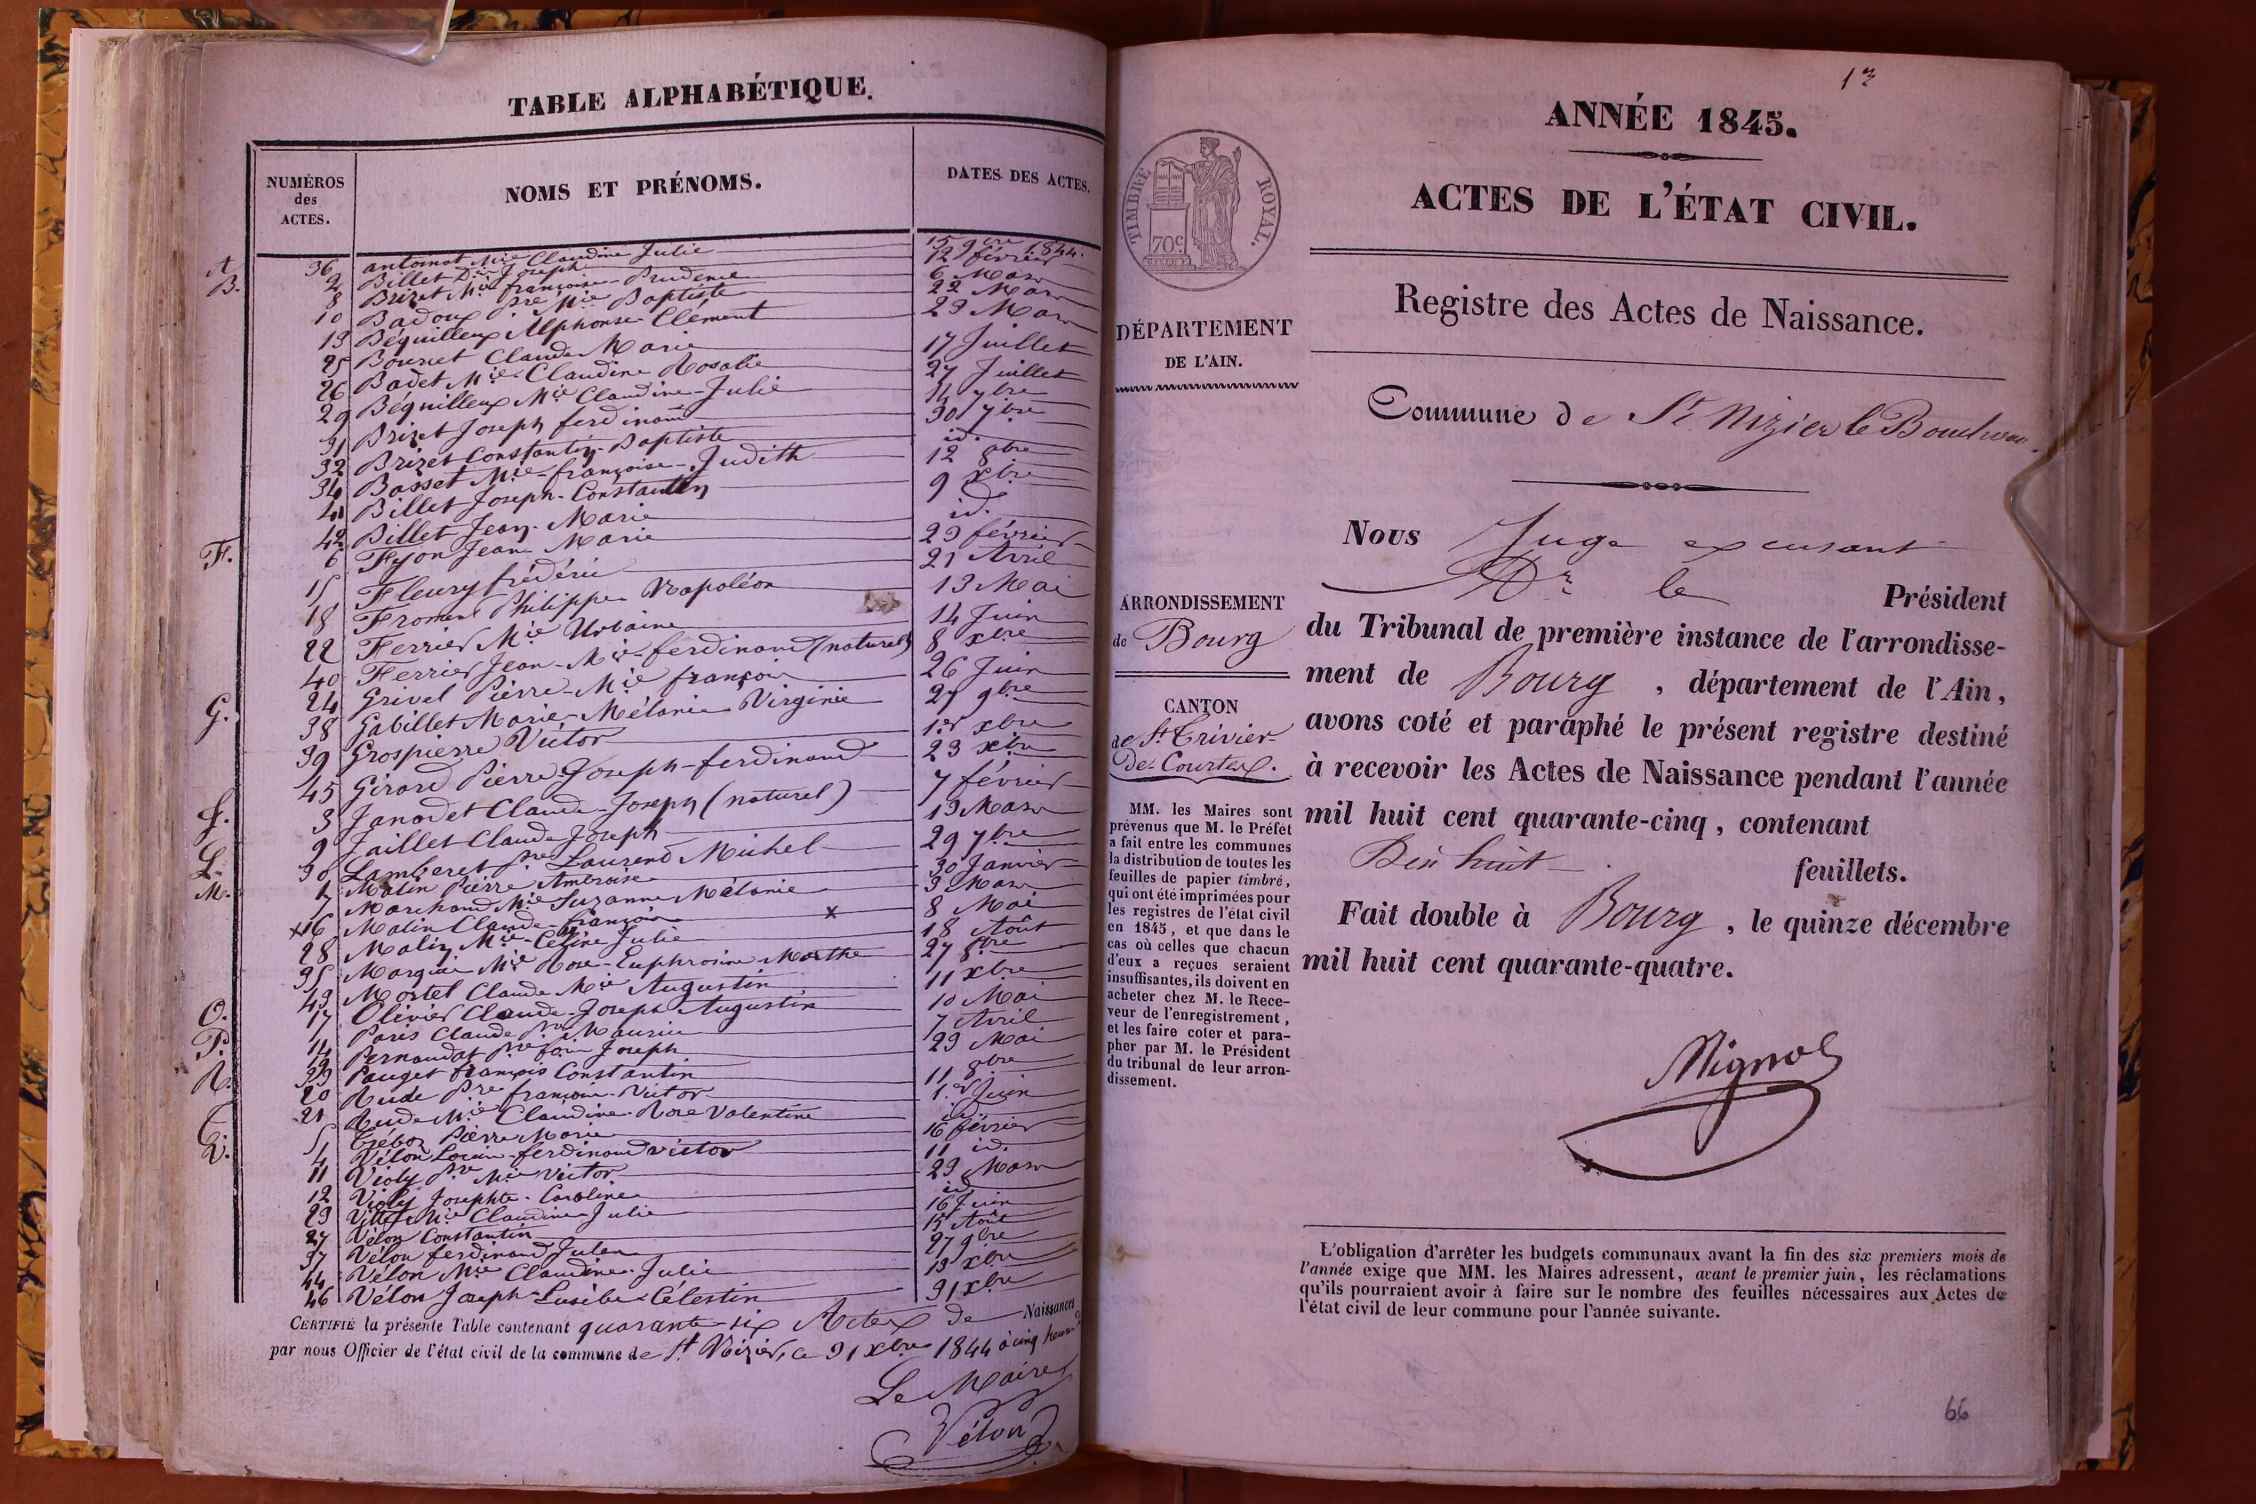 TABLE ALPHABÉTIQUE.
NUMÉROS
des
ACTES.
NOMS ET PRÉNOMS.
DATES DES ACTES.
A 36 antomat Mie Claudine Julie 15 9bre 1844.
B. 2 Billet Joseph 12 février
8 Brizet Mie françoise Prudence 6 Mars
10 Badoux Pre Mie Baptiste 22 Mars
13 Béquilleux Alphonse Clément 23 Mars
25 Bourcet Claude Marie 17 Juillet
26 Badet Mie Claudine Rosalie 27 Juillet
29 Béquilleux Mie Claudine Julie 14 7bre
31 Brizet Joseph ferdinand 30 7bre
32 Brizet Constantin Baptiste id.
34 Basset Mie françoise Judith 12 8bre
41 Billet Joseph Constantin 9 xbre
42 Billet Jean Marie id.
F. 6 Fyon Jean Marie 23 février
15 Fleury frédéric 21 Avril
18 Froment Philippe Napoléon 13 Mai
22 Ferrier Mie Urbaine 14 Juin
40 Ferrier Jean Mie ferdinand (naturel) 8 xbre
G. 24 Grivel Pierre Mie françois 26 Juin
38 Gabillet Marie Mélanie Virginie 27 9bre
39 Grospierre Victor 1er xbre
45 Girard Pierre Joseph ferdinand 23 xbre
J. 3 Janodet Claude Joseph (naturel) 7 février
9 Jaillet Claude Joseph 13 Mars
L. 30 Lamberet Pre Laurend Michel 29 7bre
M. 1 Matin Pierre Ambroise 30 Janvier
7 Marchand Mie Suzanne Mélanie 3 Mars
x16 Malin Claude françois x 8 Mai
28 Malin Mie Céline Julie 18 Août
35 Marguin Mie Rose Euphrosine Marthe 27 8bre
43 Mortel Claude Mie Augustin 11 xbre
O. 17 Olivier Claude Joseph Augustin 10 Mai
P. 14 Paris Claude Pre Maurice 7 Avril
19 Pernaudat Pre fois Joseph 29 Mai
33 Pauget françois Constantin 11 8bre
R. 20 Rude Pre françois Victor 1er Juin
21 Rude Mie Claudine Rose Valentine id.
5 Trébon Pierre Marie 16 février
V. 4 Vélon Louis ferdinand victor 11 id.
11 Violy Pre Mie Victor 23 Mars
12 Violy Josephte Caroline id.
23 Mie Claudine Julie 16 Juin
27 Vélon Constantin 15 Août
37 Vélon ferdinand Jules 27 9bre
44 Vélon Mie Claudine Julie 13 xbre
46 Vélon Joseph Eusèbe Célestin 31 xbre
CERTIFIÉ la présente Table contenant quarante six Actes de Naissances
par nous Officier de l'état civil de la commune de St Nizier, ce 31 Xbre 1844 à cinq heures
Le Maire
Vélon
13
ANNÉE 1845.
ACTES DE L'ÉTAT CIVIL.
TIMBRE ROYAL.
70c
Registre des Actes de Naissance.
DÉPARTEMENT
DE L'AIN.
Commune de St. Nizier le Bouchoux
Nous Juge excusant
Mr le Président
du Tribunal de première instance de l'arrondisse-
ment de Bourg, département de l'Ain,
avons coté et paraphé le présent registre destiné
à recevoir les Actes de Naissance pendant l'année
mil huit cent quarante-cinq, contenant
Dix huit feuillets.
Fait double à Bourg, le quinze décembre
mil huit cent quarante-quatre.
Mignot
ARRONDISSEMENT
de Bourg
CANTON
de St Trivier
De Courtes.
MM. les Maires sont
prévenus que M. le Préfet
a fait entre les communes
la distribution de toutes les
feuilles de papier timbré,
qui ont été imprimées pour
les registres de l'état civil
en 1845, et que dans le
cas où celles que chacun
d'eux a reçues seraient
insuffisantes, ils doivent en
acheter chez M. le Rece-
veur de l'enregistrement,
et les faire coter et para-
pher par M. le Président
du tribunal de leur arron-
dissement.
L'obligation d'arrêter les budgets communaux avant la fin des six premiers mois de
l'année exige que MM. les Maires adressent, avant le premier juin, les réclamations
qu'ils pourraient avoir à faire sur le nombre des feuilles nécessaires aux Actes de
l'état civil de leur commune pour l'année suivante.
66